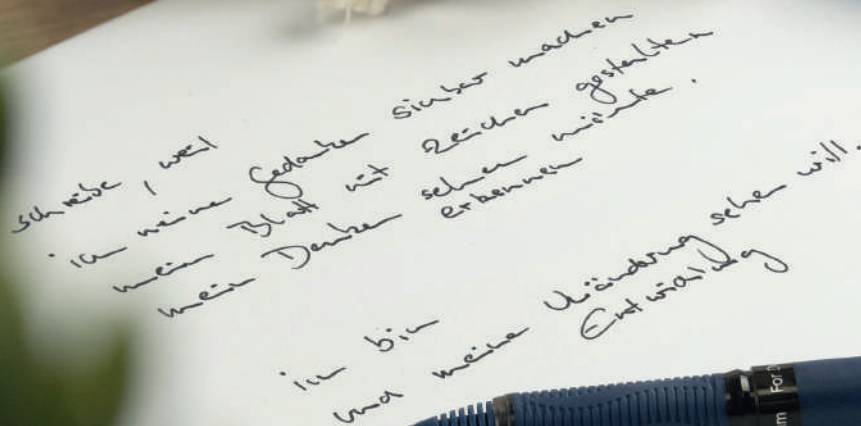 schreibe, weil
ich meine Gedanken sichtbar machen
mein Blatt mit Zeichen gestalten
mein Denken sehen möchte.
erkennen
ich bin
und meine Veränderung sehen will.
Entwicklung
For D
m